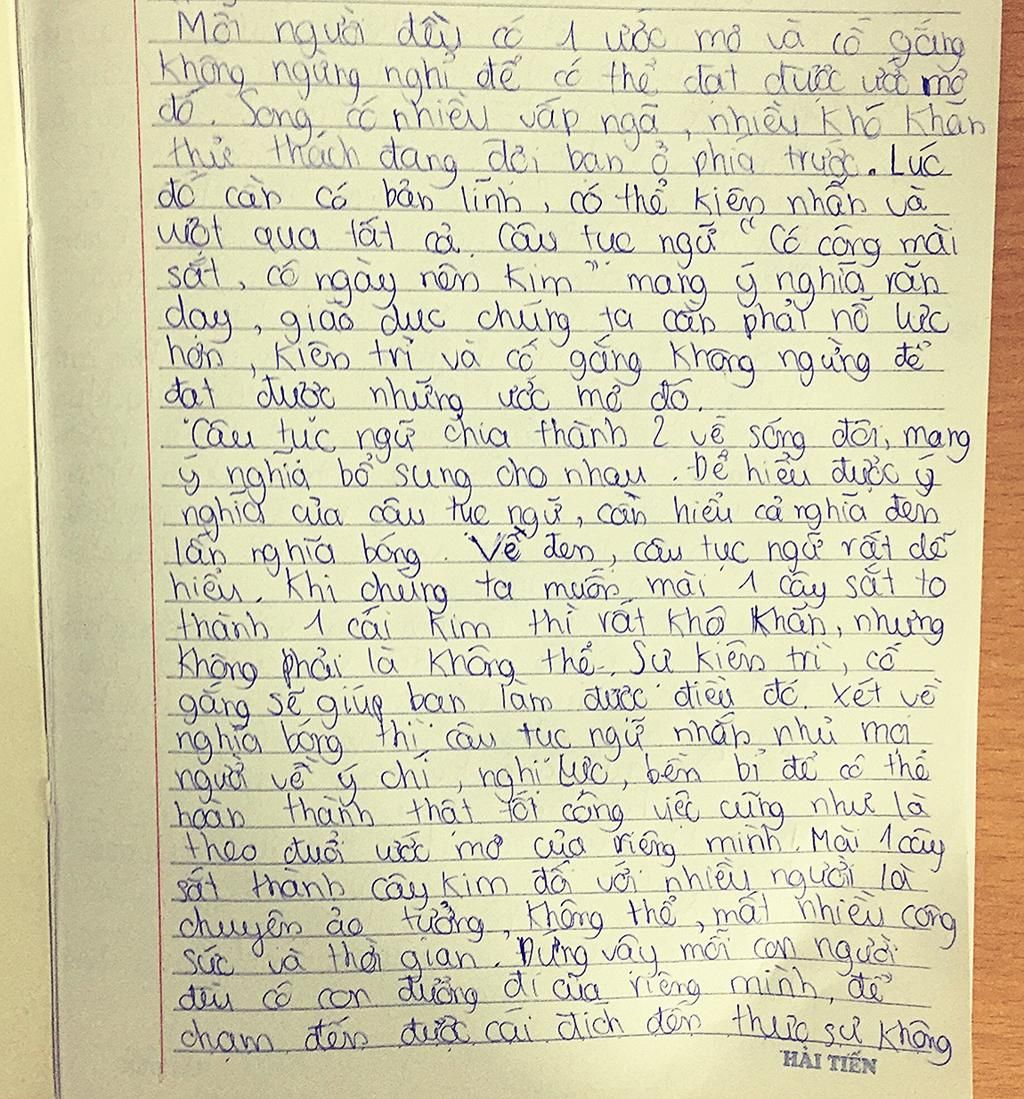 Mỗi người đều có 1 ước mơ và cố gắng
không ngừng nghỉ để có thể đạt được ước mơ
đó. Song, có nhiều vấp ngã, nhiều khó khăn
thử thách đang đợi bạn ở phía trước. Lúc
đó cần có bản lĩnh, có thể kiên nhẫn và
vượt qua tất cả. Câu tục ngữ "Có công mài
sắt, có ngày nên kim" mang ý nghĩa răn
dạy, giáo dục chúng ta cần phải nỗ lực
hơn, kiên trì và cố gắng không ngừng để
đạt được những ước mơ đó.
Câu tục ngữ chia thành 2 vế sóng đôi, mang
ý nghĩa bổ sung cho nhau. Để hiểu được ý
nghĩa của câu tục ngữ, cần hiểu cả nghĩa đen
lẫn nghĩa bóng. Về đen, câu tục ngữ rất dễ
hiểu. Khi chúng ta muốn mài 1 cây sắt to
thành 1 cái kim thì rất khó khăn, nhưng
không phải là không thể. Sự kiên trì, cố
gắng sẽ giúp bạn làm được điều đó. Xét về
nghĩa bóng thì câu tục ngữ nhấn nhủ mọi
người về ý chí, nghị lực, bền bỉ để có thể
hoàn thành thật tốt công việc cũng như là
theo đuổi ước mơ của riêng mình. Mài 1 cây
sắt thành cây kim đối với nhiều người là
chuyện ảo tưởng, không thể, mất nhiều công
sức và thời gian. Đúng vậy mỗi con người
đều có con đường đi của riêng mình, để
chạm đến được cái đích đến thực sự không
HẢI TIẾN